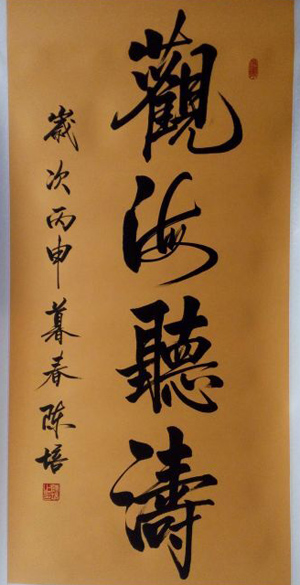 觀海聽濤
歲次丙申暮春陈培